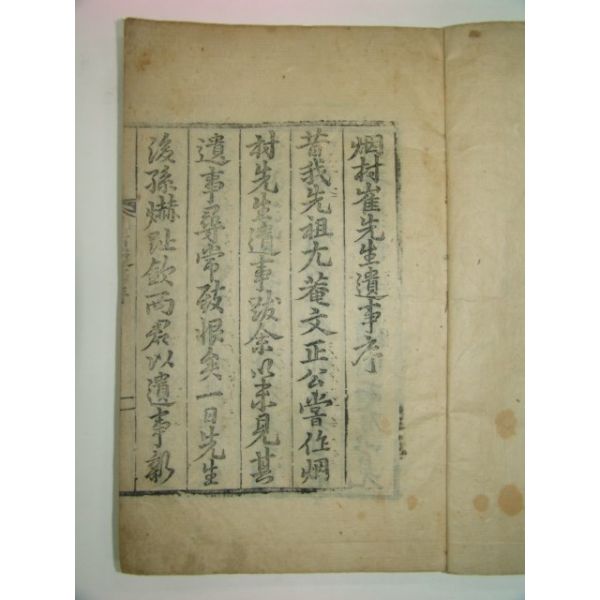 烟村崔先生遺事序
昔我先祖尤菴文正公嘗作烟
村先生遺事跋余以未見其
遺事尋常致恨矣一日先生
後孫爀趾飮兩君以遺事新